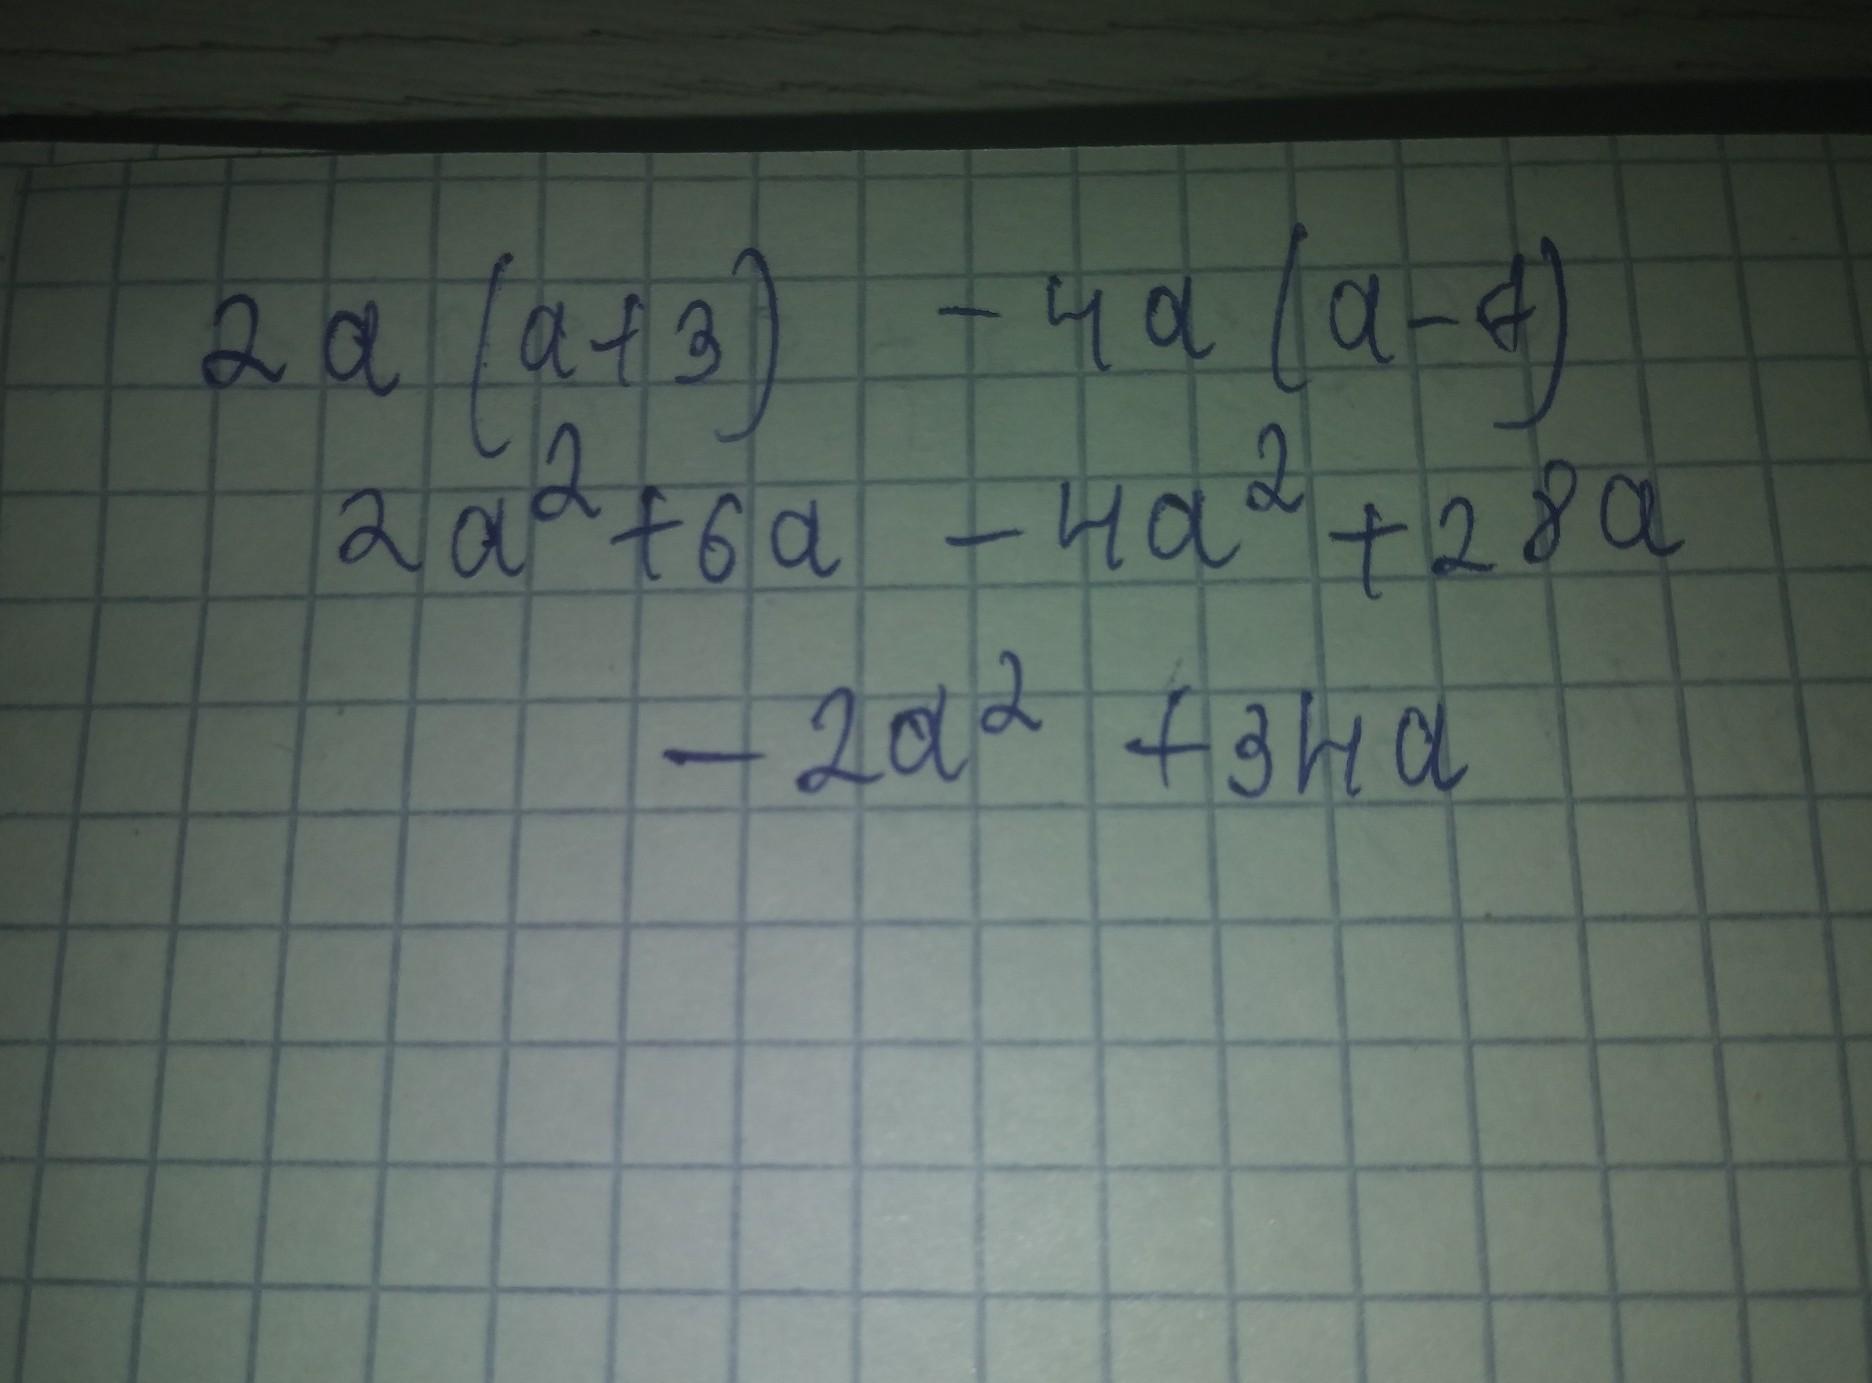 2a(a+3) -4a(a-7)
2a²+6a -4a²+28a
-2a² +34a